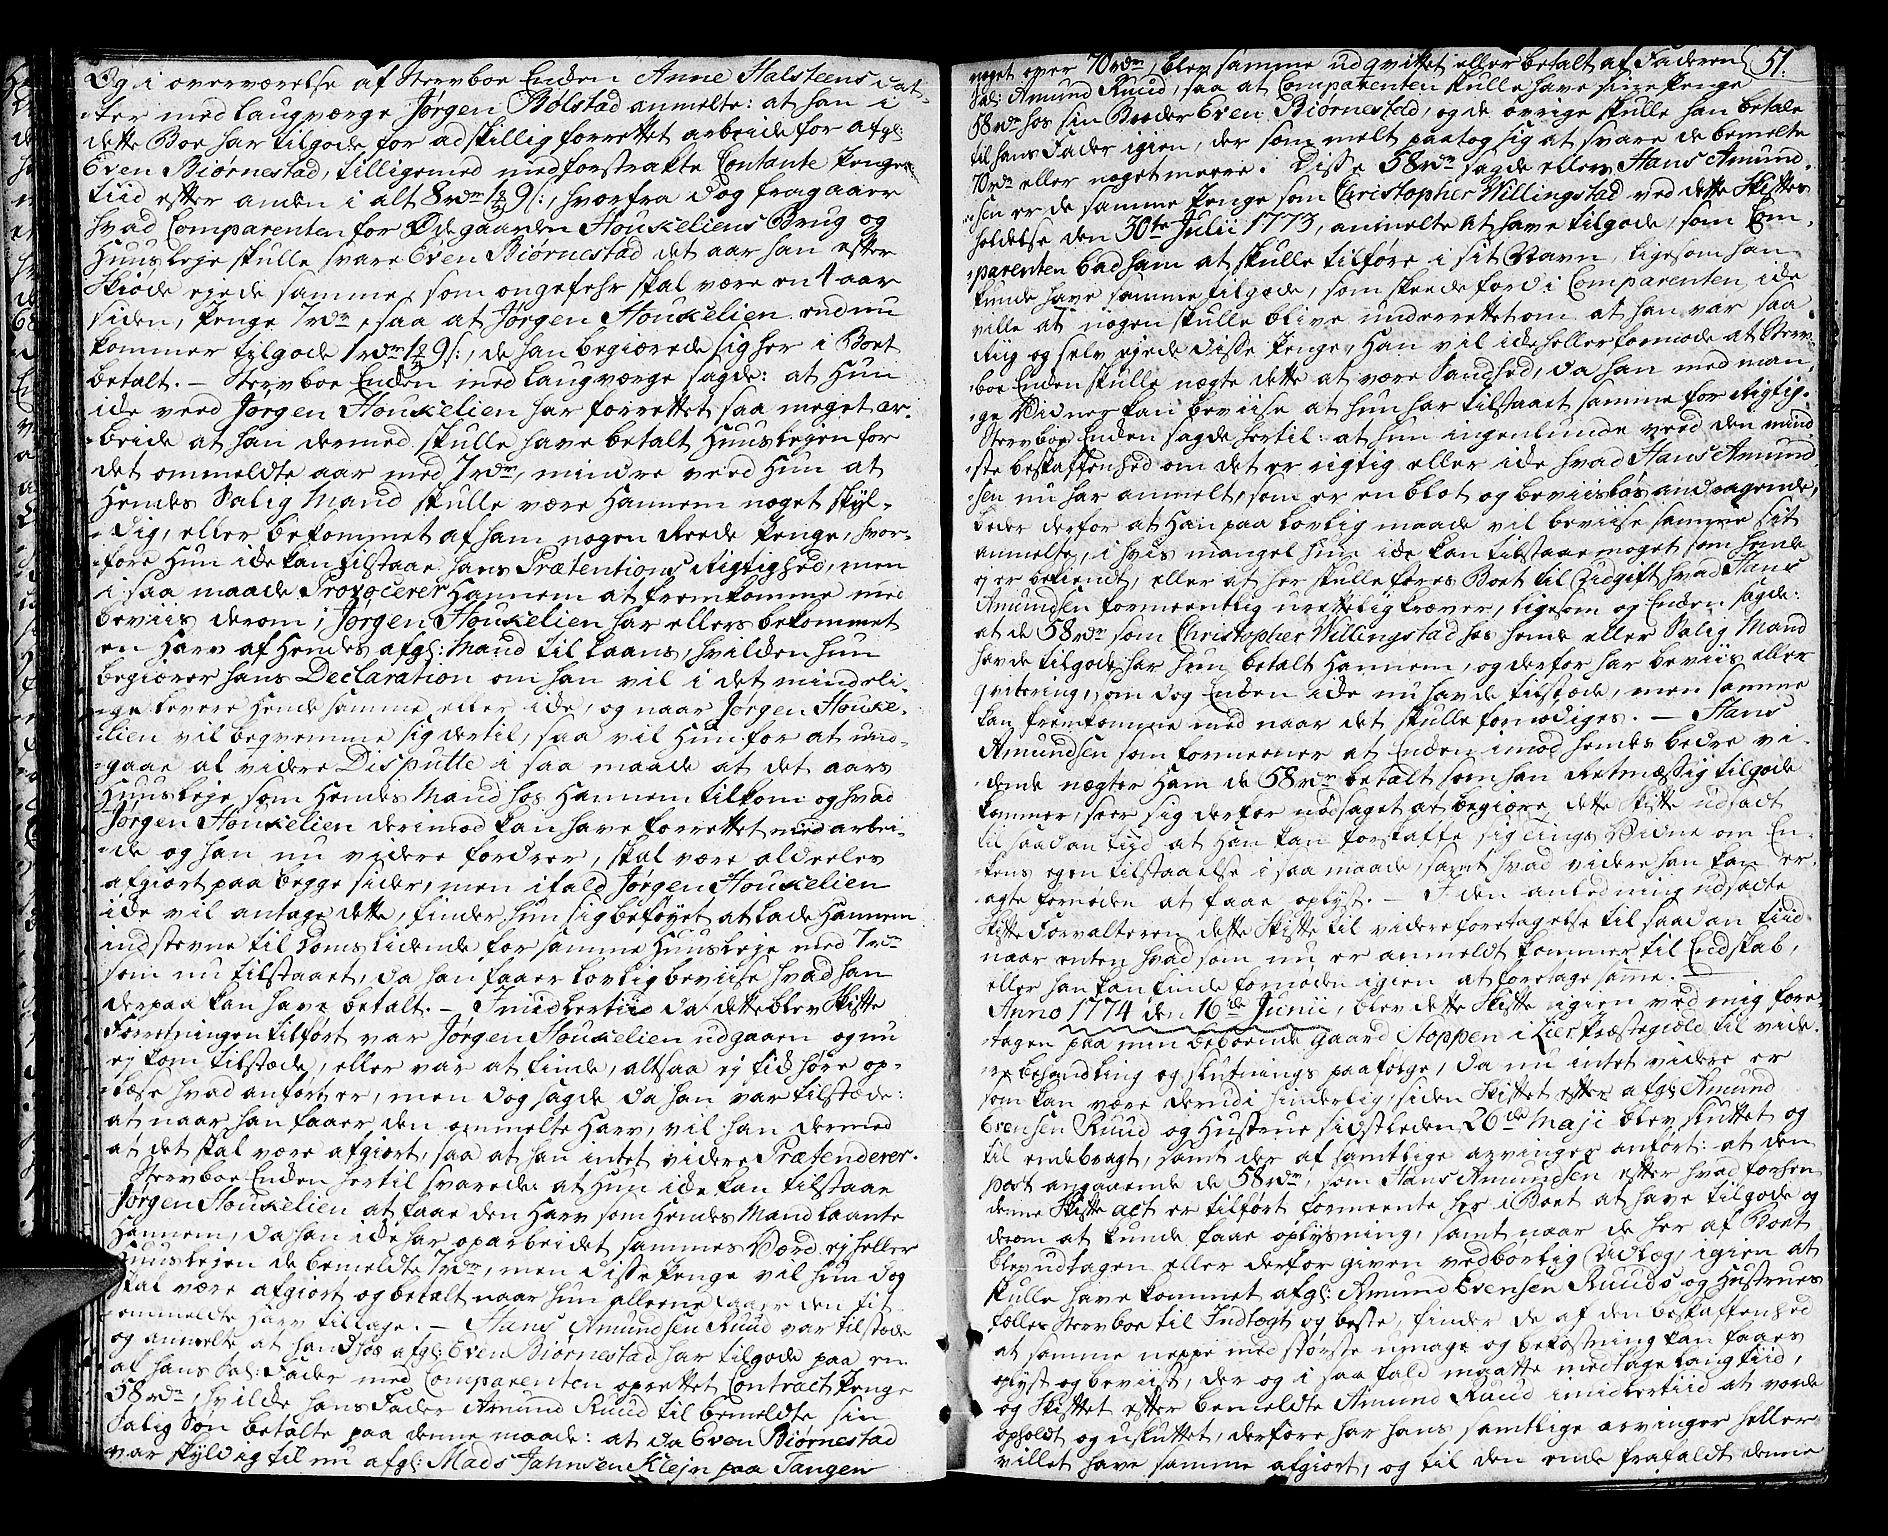 Og i overværelse af Stervboe Enden Anne Halsteens dat-
ter med laugværge Jørgen Bølstad anmelte: at han i
dette Boe har tilgode for adskillig forrettet arbeide for afgl:
Even Biørnestad, tilligemed medforstrakte Contante Penge
tiid efter anden i alt 8 rdr 1 1/2 9 s:, hvorfra dog fragaaer
hvad Comparenten for Ødegaarden Houkeliens Brug og
Huusleje skulle svare Even Biørnestad det aar han efter
Skiøde ejede samme, som ongefehr skal være en 4 aar
siden, Penge 7 rdr, saa at Jørgen Houkelien endnu
kommer tilgode 1 rdr 1 1/2 9 s:, de han begiærede sig her i Boet
betalt. – Stervboe Enden med laugværge sagde: at Hun
ide veed Jørgen Houkelien har forrettet saa meget ar-
beide at han dermed skulle have betalt Huuslegen for
det ommeldte aar med 7 rdr, mindre veed Hun at
Hendes Salig Mand skulle være Hannem noget skyl-
dig, eller bekommet af ham nogen Reede Penge, hvor-
fore Hun ide kan tilstaae hans Prætentions Rigtighed, men
i saa maade Provocerer Hannem at fremkomme med
beviis derom; Jørgen Houkelien har ellers bekommet
en Harv af Hendes afgl: Mand til Laans, hvilden hun
begiærer hans Declaration om han vil i det mindeli-
ge levere Hende samme eller ide, og naar Jørgen Houke-
lien vil beqvemme sig dertil, saa vil Hun for at und-
gaae al videre Disputte i saa maade at det aars
Huusleje som Hendes Mand hos Hannem tilkom og hvad
Jørgen Houkelien derimod kan have forrettet med arbei-
de og han nu videre fordrer, skal være aldeeles
afgiort paa begge sider, men ifald Jørgen Houkelien
ide vil antage dette, finder hun sig beføyet at lade Hannem
indstevne til Doms lidende for samme Huusleje med 7 rdr
som nu tilstaaet, da han faaer lovlig beviise hvad han
derpaa kan have betalt. – Imidlertiid da dette blev Skifte
Forretningen tilført var Jørgen Houkelien udgaaen og nu
ej kom tilstæde, eller var at finde, altsaa ej fik høre op-
læse hvad anført er, men dog sagde da han var tilstæde:
at naar han faaer den ommelte Harv, vil han dermed
at det skal være afgiort, saa at han intet videre Prætenderer.
Stervboe Enden hertil svarede: at Hun ide kan tilstaae
Jørgen Houkelien at faae den Harv som Hendes Mand laante
Hannem, da han ide har oparbeidet sammes Værd, ej heller
Huuslejen de bemeldte 7 rdr, men disse Penge vil hun dog
skal være afgiort og betalt naar hun alleene faaer den tit-
ommeldte Harv tilbage. – Hans Amundsen Ruud var tilstæde
og anmelte, at han hos afgl: Even Biørnestad har tilgode paa en
af hans Sal: Fader med Comparenten oprettet Contract Penge
58 rdr, hvilde hans Fader Amund Ruud til bemeldte sin
Salig Søn betalte paa denne maade: at da Even Biørnestad
var skyldig til nu afgl: Mads Jahnsen Klejn paa Tangen
51.
noget over 70 rdr, blev samme udqvittet eller betalt af Faderen
Sal: Amund Ruud, saa at Comparenten skulle have sine Penge
58 rdr hos sin Broder Even Biørnestad, og de øvrige skulle han betale
til hans Fader igien, der som melt paatog sig at svare de bemelte
70 rdr eller noget meere. Disse 58 rdr sagde ellers Hans Amund-
sen er de samme Penge som Christopher Willingstad ved dette Skiftes
holdelse den 30te Julii 1773, anmelte at have tilgode, som Com-
parenten bad ham at skulle tilføre i sit Navn, ligesom han
kunde have samme tilgode, som skeede fordi Comparenten ide
ville at nogen skulle blive underrettet om at han var saa
Riig og selv ejede disse Penge, Han vil ide heller formode at Sterv-
boe Enden skulle nægte dette at være Sandhed, da han med man-
ge Vidner kan beviise at hun har tilstaaet samme for Rigtig.
Stervboe Enden sagde hertil: at hun ingenlunde veed den mind-
ste beskaffenhed om det er rigtig eller ide hvad Hans Amund-
sen nu har anmelt, som er en blot og beviisløs andragende,
beder derfor at Han paa lovlig maade vil beviise samme sit
anmelte, i hvis mangel hun ide kan tilstaae noget som hende
ej er bekiendt, eller at her skulle føres Boet til Udgift hvad Hans
Amundsen formeentlig urettelig kræver, ligesom og Enden sagde:
at de 58 rdr som Christopher Willingstad hos hende eller Salig Mand
havde tilgode har hun betalt Hannem, og derfor har beviis eller
qvitering, som dog Enden ide nu havde tilstæde, men samme
kan fremkomme med naar det skulle fornødiges. – Hans
Amundsen som formeener at Enden imod hendes bedre vi-
dende nægter Ham de 58 rdr betalt som han Retmæssig tilgode
kommer, seer sig derfor nødsaget at begiære dette Skifte udsadt
til saadan tiid at Han kan forskaffe sig Tings Vidne om En-
kens egen tilstaaelse i saa maade, samt hvad videre han kan er-
agte fornøden at faae oplyst. – I den anledning udsadte
Skifte Forvalteren dette Skifte til videre foretagelse til saadan tiid
naar enten hvad som nu er anmeldt kommer til Endskab,
eller han kan finde fornøden igien at foretage samme.
Anno 1774 den 16de Junii, blev dette Skifte igien ved mig fore-
tagen paa min beboende gaard Stoppen i Lier Præstegield til vide-
re behandling og slutnings paafølge, da nu intet videre er
som kan være derudi hinderlig, siden Skiftet efter afgl: Amund
Evensen Ruud og Hustrue sidstleden 26de Maji blev sluttet og
til endebragt, samt der af samtlige arvinger anført: at den
post angaaende de 58 rdr, som Hans Amundsen efter hvad forhen
denne Skifte act er tilført formeente her i Boet at have tilgode og
derom at kunde faae oplysning, samt naar de her af Boet
blev udtagen eller derfor given vedbørlig Udlæg, igien at
skulle have kommet afgl: Amund Evensen Ruuds og Hustrues
fælles Stervboe til Indtægt og beste, finder de af den beskaffenhed
at samme neppe med største umage og bekostning kan faaes
oplyst og beviist, der og i saa fald maatte medtage lang tiid,
og Skiftet efter bemeldte Amund Ruud imidlertiid at vorde
opholdt og usluttet, derfore har hans samtlige arvinger heller
villet have samme afgiort, og til den ende frafaldt denne